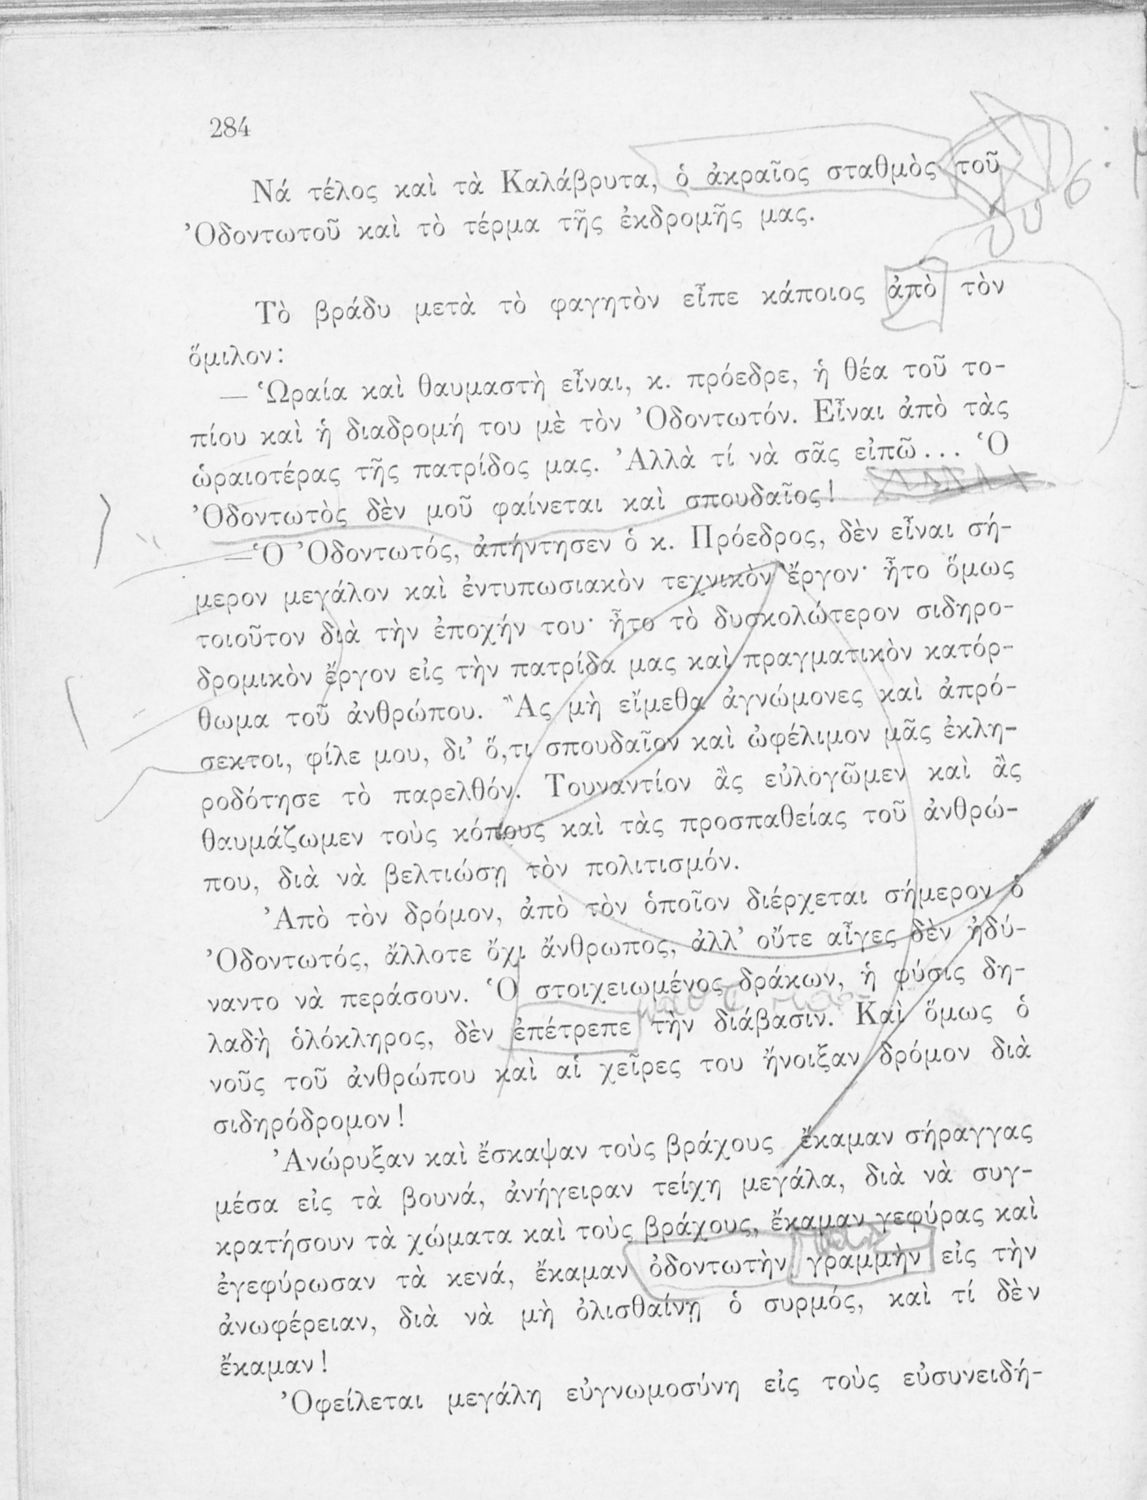 284
Νά τέλος καὶ τὰ Καλάβρυτα, ὁ ἀκραῖος σταθμὸς τοῦ
Ὀδοντωτοῦ καὶ τὸ τέρμα τῆς ἐκδρομῆς μας.
Τὸ βράδυ μετὰ τὸ φαγητὸν εἶπε κάποιος ἀπὸ τὸν
ὅμιλον:
— Ὡραία καὶ θαυμαστὴ εἶναι, κ. πρόεδρε, ἡ θέα τοῦ το-
πίου καὶ ἡ διαδρομή του μὲ τὸν Ὀδοντωτόν. Εἶναι ἀπὸ τὰς
ὡραιοτέρας τῆς πατρίδος μας. Ἀλλὰ τί νὰ σᾶς εἰπῶ... Ὁ
Ὀδοντωτὸς δὲν μοῦ φαίνεται καὶ σπουδαῖος!
—Ὁ Ὀδοντωτός, ἀπήντησεν ὁ κ. Πρόεδρος, δὲν εἶναι σή-
μερον μεγάλον καὶ ἐντυπωσιακὸν τεχνικὸν ἔργον· ἦτο ὅμως
τοιοῦτον διὰ τὴν ἐποχήν του· ἦτο τὸ δυσκολώτερον σιδηρο-
δρομικὸν ἔργον εἰς τὴν πατρίδα μας καὶ πραγματικὸν κατόρ-
θωμα τοῦ ἀνθρώπου. Ἂς μὴ εἴμεθα ἀγνώμονες καὶ ἀπρό-
σεκτοι, φίλε μου, δι' ὅ,τι σπουδαῖον καὶ ὠφέλιμον μᾶς ἐκλη-
ροδότησε τὸ παρελθόν. Τουναντίον ἂς εὐλογῶμεν καὶ ἂς
θαυμάζωμεν τοὺς κόπους καὶ τὰς προσπαθείας τοῦ ἀνθρώ-
που, διὰ νὰ βελτιώσῃ τὸν πολιτισμόν.
Ἀπὸ τὸν δρόμον, ἀπὸ τὸν ὁποῖον διέρχεται σήμερον ὁ
Ὀδοντωτός, ἄλλοτε ὄχι ἄνθρωπος, ἀλλ' οὔτε αἶγες δὲν ἠδύ-
ναντο νὰ περάσουν. Ὁ στοιχειωμένος δράκων, ἡ φύσις δη-
λαδὴ ὁλόκληρος, δὲν ἐπέτρεπε τὴν διάβασιν. Καὶ ὅμως ὁ
νοῦς τοῦ ἀνθρώπου καὶ αἱ χεῖρες του ἤνοιξαν δρόμον διὰ
σιδηρόδρομον!
Ἀνώρυξαν καὶ ἔσκαψαν τοὺς βράχους ἔκαμαν σήραγγας
μέσα εἰς τὰ βουνά, ἀνήγειραν τείχη μεγάλα, διὰ νὰ συγ-
κρατήσουν τὰ χώματα καὶ τοὺς βράχους, ἔκαμαν γεφύρας καὶ
ἐγεφύρωσαν τὰ κενά, ἔκαμαν ὀδοντωτὴν γραμμὴν εἰς τὴν
ἀνωφέρειαν, διὰ νὰ μὴ ὀλισθαίνῃ ὁ συρμός, καὶ τί δὲν
ἔκαμαν!
Ὀφείλεται μεγάλη εὐγνωμοσύνη εἰς τοὺς εὐσυνειδή-